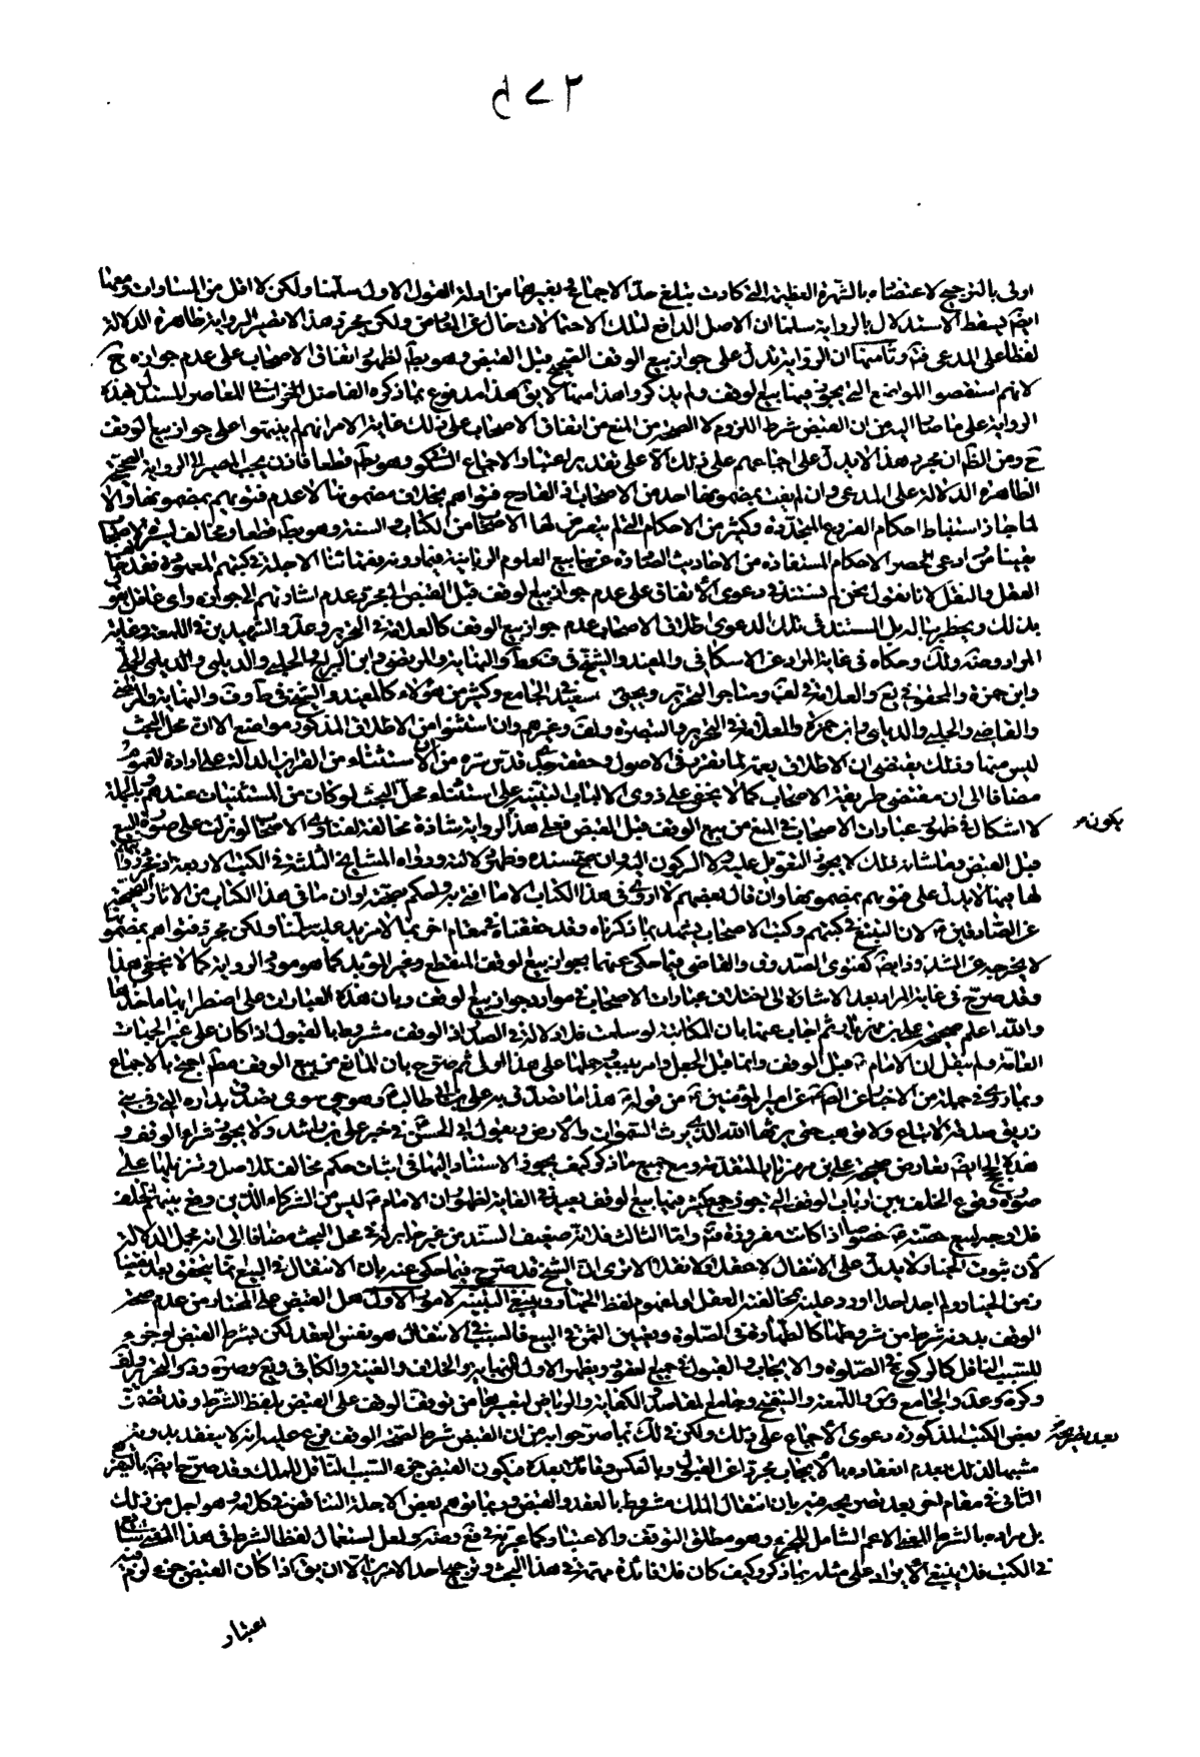 اولى بالترجيح لاعتضاده بالشهرة العظيمة التي كادت تبلغ حد الاجماع في بغيرها من ادلة القول الاول سلمنا ولكن لا اقل من المساوات ومعها
ايضا يسقط الاستدلال بالرواية سلمنا ان الاصل الدافع لتلك الاحتمالات خال عن المعارض ولكن مجرد هذا لا يصير الرواية ظاهرة الدلالة
لفظا على المدعى فتم وثامنها ان الرواية تدل على جواز بيع الوقف الصحيح قبل القبض وهو بط لظهور اتفاق الاصحاب على عدم جوازه ح
لانهم استقصوا المواضع التي يجوز فيها بيع الوقف ولم يذكروا هذا منها لا يق هذا مدفوع بما ذكره الفاضل الخراساني المعاصر المستدل بهذه
الرواية على ما صار اليه من ان القبض شرط اللزوم لا الصحة من المنع من اتفاق الاصحاب على ذلك غاية الامر انهم لم ينبهوا على جواز بيع الوقف
ح ومن الظ ان مجرد هذا لا يدل على اجماعهم على ذلك الا على تقدير اعتبار الاجماع السكوتي وهو بط قطعا فاذن يجب المصير الى الرواية الصحيحة
الظاهرة الدلالة على المدعى وان لم يفت بمضمونها احد من الاصحاب اذ القادح فتواهم بخلاف مضمونها لا عدم فتويهم بمضمونها والا
لما جاز استنباط احكام الفروع المتجددة وكثير من الاحكام التي لم يتعرض لها الاصحاب من الكتاب والسنة وهو بط قطعا ومخالف لسيرة الاصحاب
يقينا ومن ادعى حصر الاحكام المستفادة من الاحاديث الصادرة عن ينابيع العلوم الربانية فيما دونه فقهائنا الاجلة في كتبهم المعهودة فقد خالف
العقل والنقل لانا نقول نحن لم نستند في دعوى الاتفاق على عدم جواز بيع الوقف قبل القبض الى مجرد عدم اشارتهم الى جوازه واي عاقل يتفوه
بذلك ويخطر بباله بل المستند في تلك الدعوى اطلاق الاصحاب عدم جواز بيع الوقف كالعلامة في التحرير وعد والشهيدين في اللمعة وغاية
المراد وضة ولك وحكاه في غاية المراد عن الاسكافي والمفيد والشيخ في ف وط والنهاية والمرتضى وابن البراج والحلبي والديلمي والحلي
وابن حمزة والمحقق في يع والعلامة في لف ومتاجر التحرير ويحيى بن سعيد في الجامع وكثير من هؤلاء كالمفيد والشيخ في ط وف والنهاية والمرتضى
والقاضي والحلبي والديلمي وابن حمزة والعلامة في التحرير والتبصرة ولف وغيرهم وان استثنوا من الاطلاق المذكور مواضع الا ان محل البحث
ليس منها وذلك يقتضي ان الاطلاق يعمه لما تقرر في الاصول وحققته من ان الاستثناء من القرائن الدالة على ارادة العموم
مضافا الى ان مقتضى طريقة الاصحاب كما لا يخفى على ذوي الالباب التنبيه على استثناء محل البحث لو كان من المستثنيات عندهم وبالجملة
لا اشكال في ظهور عبارات الاصحاب في المنع من بيع الوقف قبل القبض فعلى هذا الرواية شاذة مخالفة لفتاوى الاصحاب لو نزلت على صورة البيع
يكون م
قبل القبض وما شانه ذلك لا يجوز التعويل عليه ولا الركون اليه وان صح سنده وظهر دلالته ورواه المشايخ الثلثة في الكتب الاربعة ومجرد ذكرهم
لها فيها لا يدل على فتويهم بمضمونها وان قال بعضهم لا اورد في هذا الكتاب الا ما افتي به واحكم بصحته وان ما في هذا الكتاب من الاثار الصحيحة
عن الصادقين ع لان التتبع في كتبهم وكتب الاصحاب يشهد بما ذكرناه وقد حققناه في مقام اخر بما لا مزيد عليه سلمنا ولكن مجرد فتواهم بمضمونها
لا يخرجه عن الشذوذ ايضا كفتوى الصدوق والقاضي فيما حكي عنهما بجواز بيع الوقف المنقطع وغير المؤبد كما هو مورد الرواية كما لا يخفى هذا
وقد صرح في غاية المراد بعد الاشارة الى اختلاف عبارات الاصحاب في موارد جواز بيع الوقف وبان هذه العبارات على اضطرابها ماخذها
والله اعلم صحيحة علي بن مهزيار ثم اجاب عنها بان المكاتبة لو سلمت فلا دلالة في الصدر اذ الوقف مشروط بالقبول اذا كان على غير الجهات
العامة ولم ينقل ان الامام ع قبل الوقف وانما قبل الجعل وامر ببيعه حملنا على هذا اولى ثم صرح بان المانع من بيع الوقف مط احتج بالاجماع
وبما روي في جملة من الاخبار عن الصادق ع عن امير المؤمنين ع من قوله ع هذا ما تصدق به علي بن ابي طالب ع وهو حي سوي تصدق بداره التي في بني
زريق صدقة لا تباع ولا توهب حتى يرثها الله الذي يرث السموات والارض وبقول ابي الحسن ع في خبر علي بن راشد ولا يجوز شراء الوقف و
هذا ايضا يعارض صحيحة علي بن مهزيار المتقدمة ومع جميع ما ذكر كيف يجوز الاستناد اليها في اثبات حكم مخالف للاصل وتنزيلها على
صورة وقوع الخلف بين ارباب الوقف التي جوز جمع كثير فيها بيع الوقف بعيد في الغاية لظهور ان الامام ع ليس من الشركاء الذين وقع بينهم الخلف
فلا وجه لبيع حصته ع خصوصا اذا كانت مفروزة فتم واما الثالث فلانه ضعيف السند من غير جابر له في محل البحث مضافا الى انه مجمل الدلالة
لان ثبوت الخيار لا يدل على الانتقال لا عقلا ولا نقلا الا ترى ان الشيخ قد صرح فيما حكي عنه بان الانتقال في البيع انما يتحقق بعد انقضاء
زمن الخيار ولم اجد احدا اورد عليه بمخالفته العقل او لمفهوم لفظ الخيار وينبغي التنبيه لامور الاول هل القبض على المختار من عدم صحة
الوقف بدونه شرط من شروطها كالطهارة في الصلوة وتعيين الثمن في البيع فالسبب في الانتقال هو نفس العقد لكن بشرط القبض او جزء
للسبب الناقل كالركوع في الصلوة والايجاب والقبول في جميع العقود ويظهر الاول من النهاية والخلاف والغنية والكافي ويع وصرة وفع والتحرير ولف
وكره وعد والجامع وس واللمعة والتنقيح وجامع المقاصد والكفاية والرياض لتعبيرها من توقف الوقف على القبض بلفظ الشرط وقد تضمنت
بعض الكتب المذكورة دعوى الاجماع على ذلك ولكن في لك بما صرح به من ان القبض شرط لصحة الوقف فرع عليه انه لا ينعقد بدونه
مشبها لذلك بعدم انعقاده بالايجاب مجردا عن القبول وبالعكس وقائلا بعده فيكون القبض جزء السبب الناقل للملك وقد صرح ايضا بالتعبير
الثاني في مقام اخر بعد تصريحه فيه بان انتقال الملك مشروط بالعقد والقبض وربما توهم بعض الاجلة التناقض في كلامه وهو اجل من ذلك
بل مراده بالشرط المعنى الاعم الشامل للجزء وهو مطلق التوقف والاعتبار وكما عبر به في فع وضة ولعل استعمال لفظ الشرط في هذا المعنى
في الكتب فلا ينبغي الايراد على مثله بما ذكر وكيف كان فلا فائدة مهمة في هذا البحث وترجيح احد الامرين الا ان يق اذا كان القبض جزء لزم
اعتبار